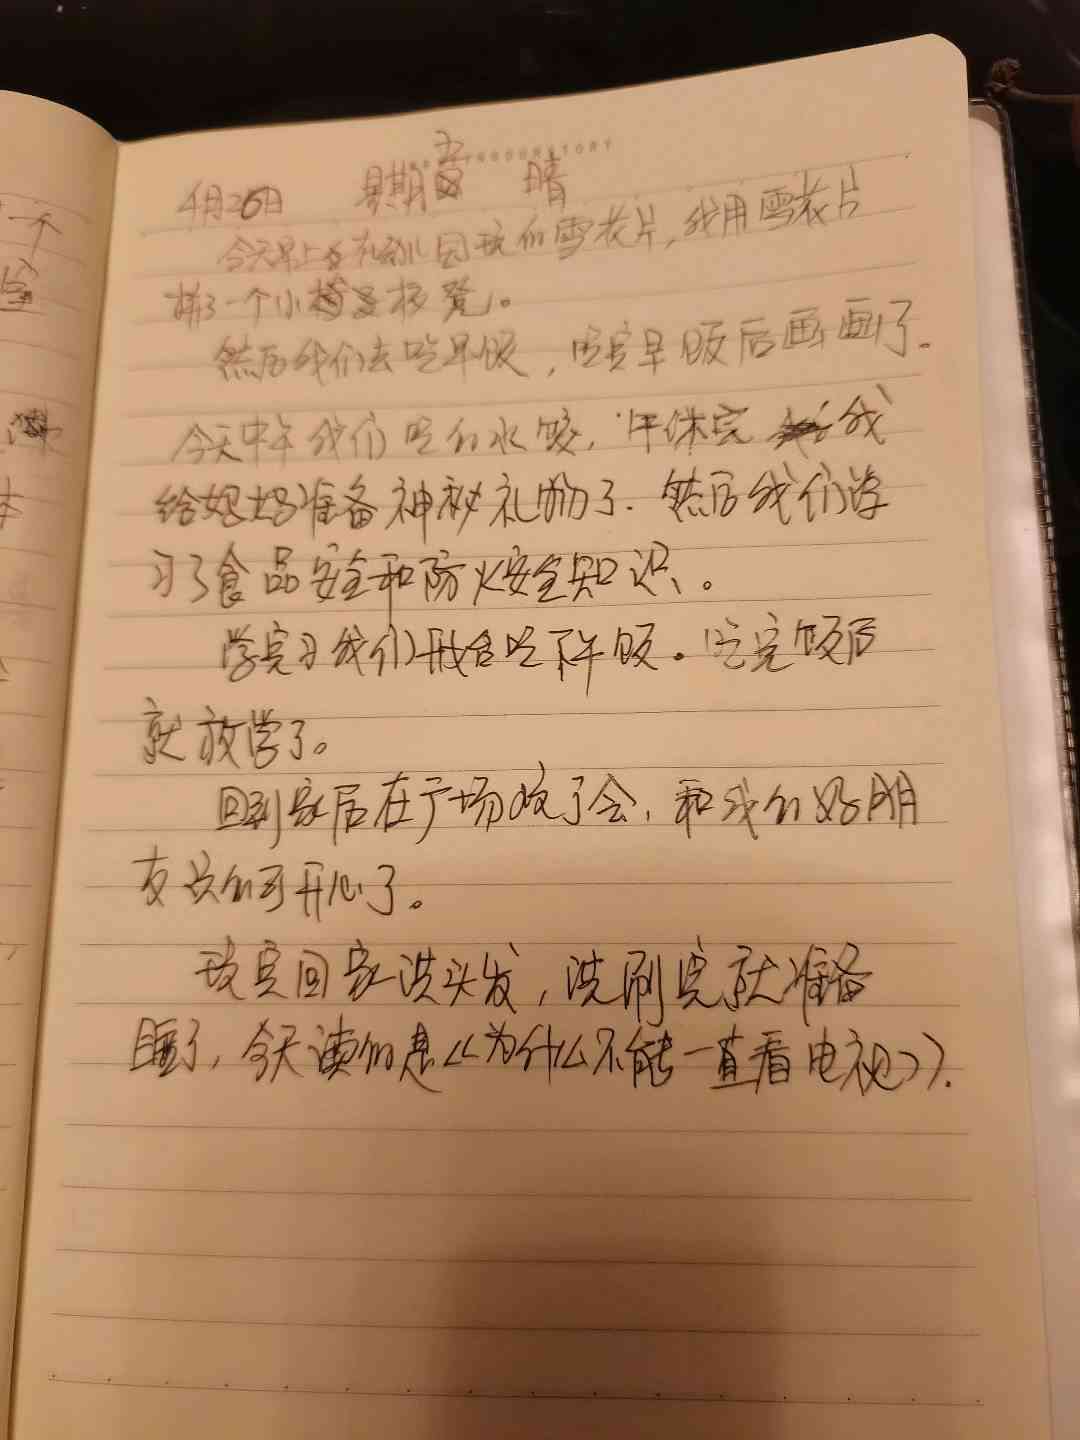 4月26日 星期五 晴
今天早上在幼儿园玩的雪花片,我用雪花片
拼了一个小板凳。
然后我们去吃早饭,吃完早饭后画画了.
今天中午我们吃的水饺,午休完我
给妈妈准备神秘礼物了.然后我们学
习了食品安全和防火安全知识。
学完习我们开始吃下午饭。吃完饭后
就放学了。
回到家后在广场玩了会,和我的好朋
友玩的可开心了。
玩完回家洗头发,洗刷完就准备
睡了,今天读的是《为什么不能一直看电视》.